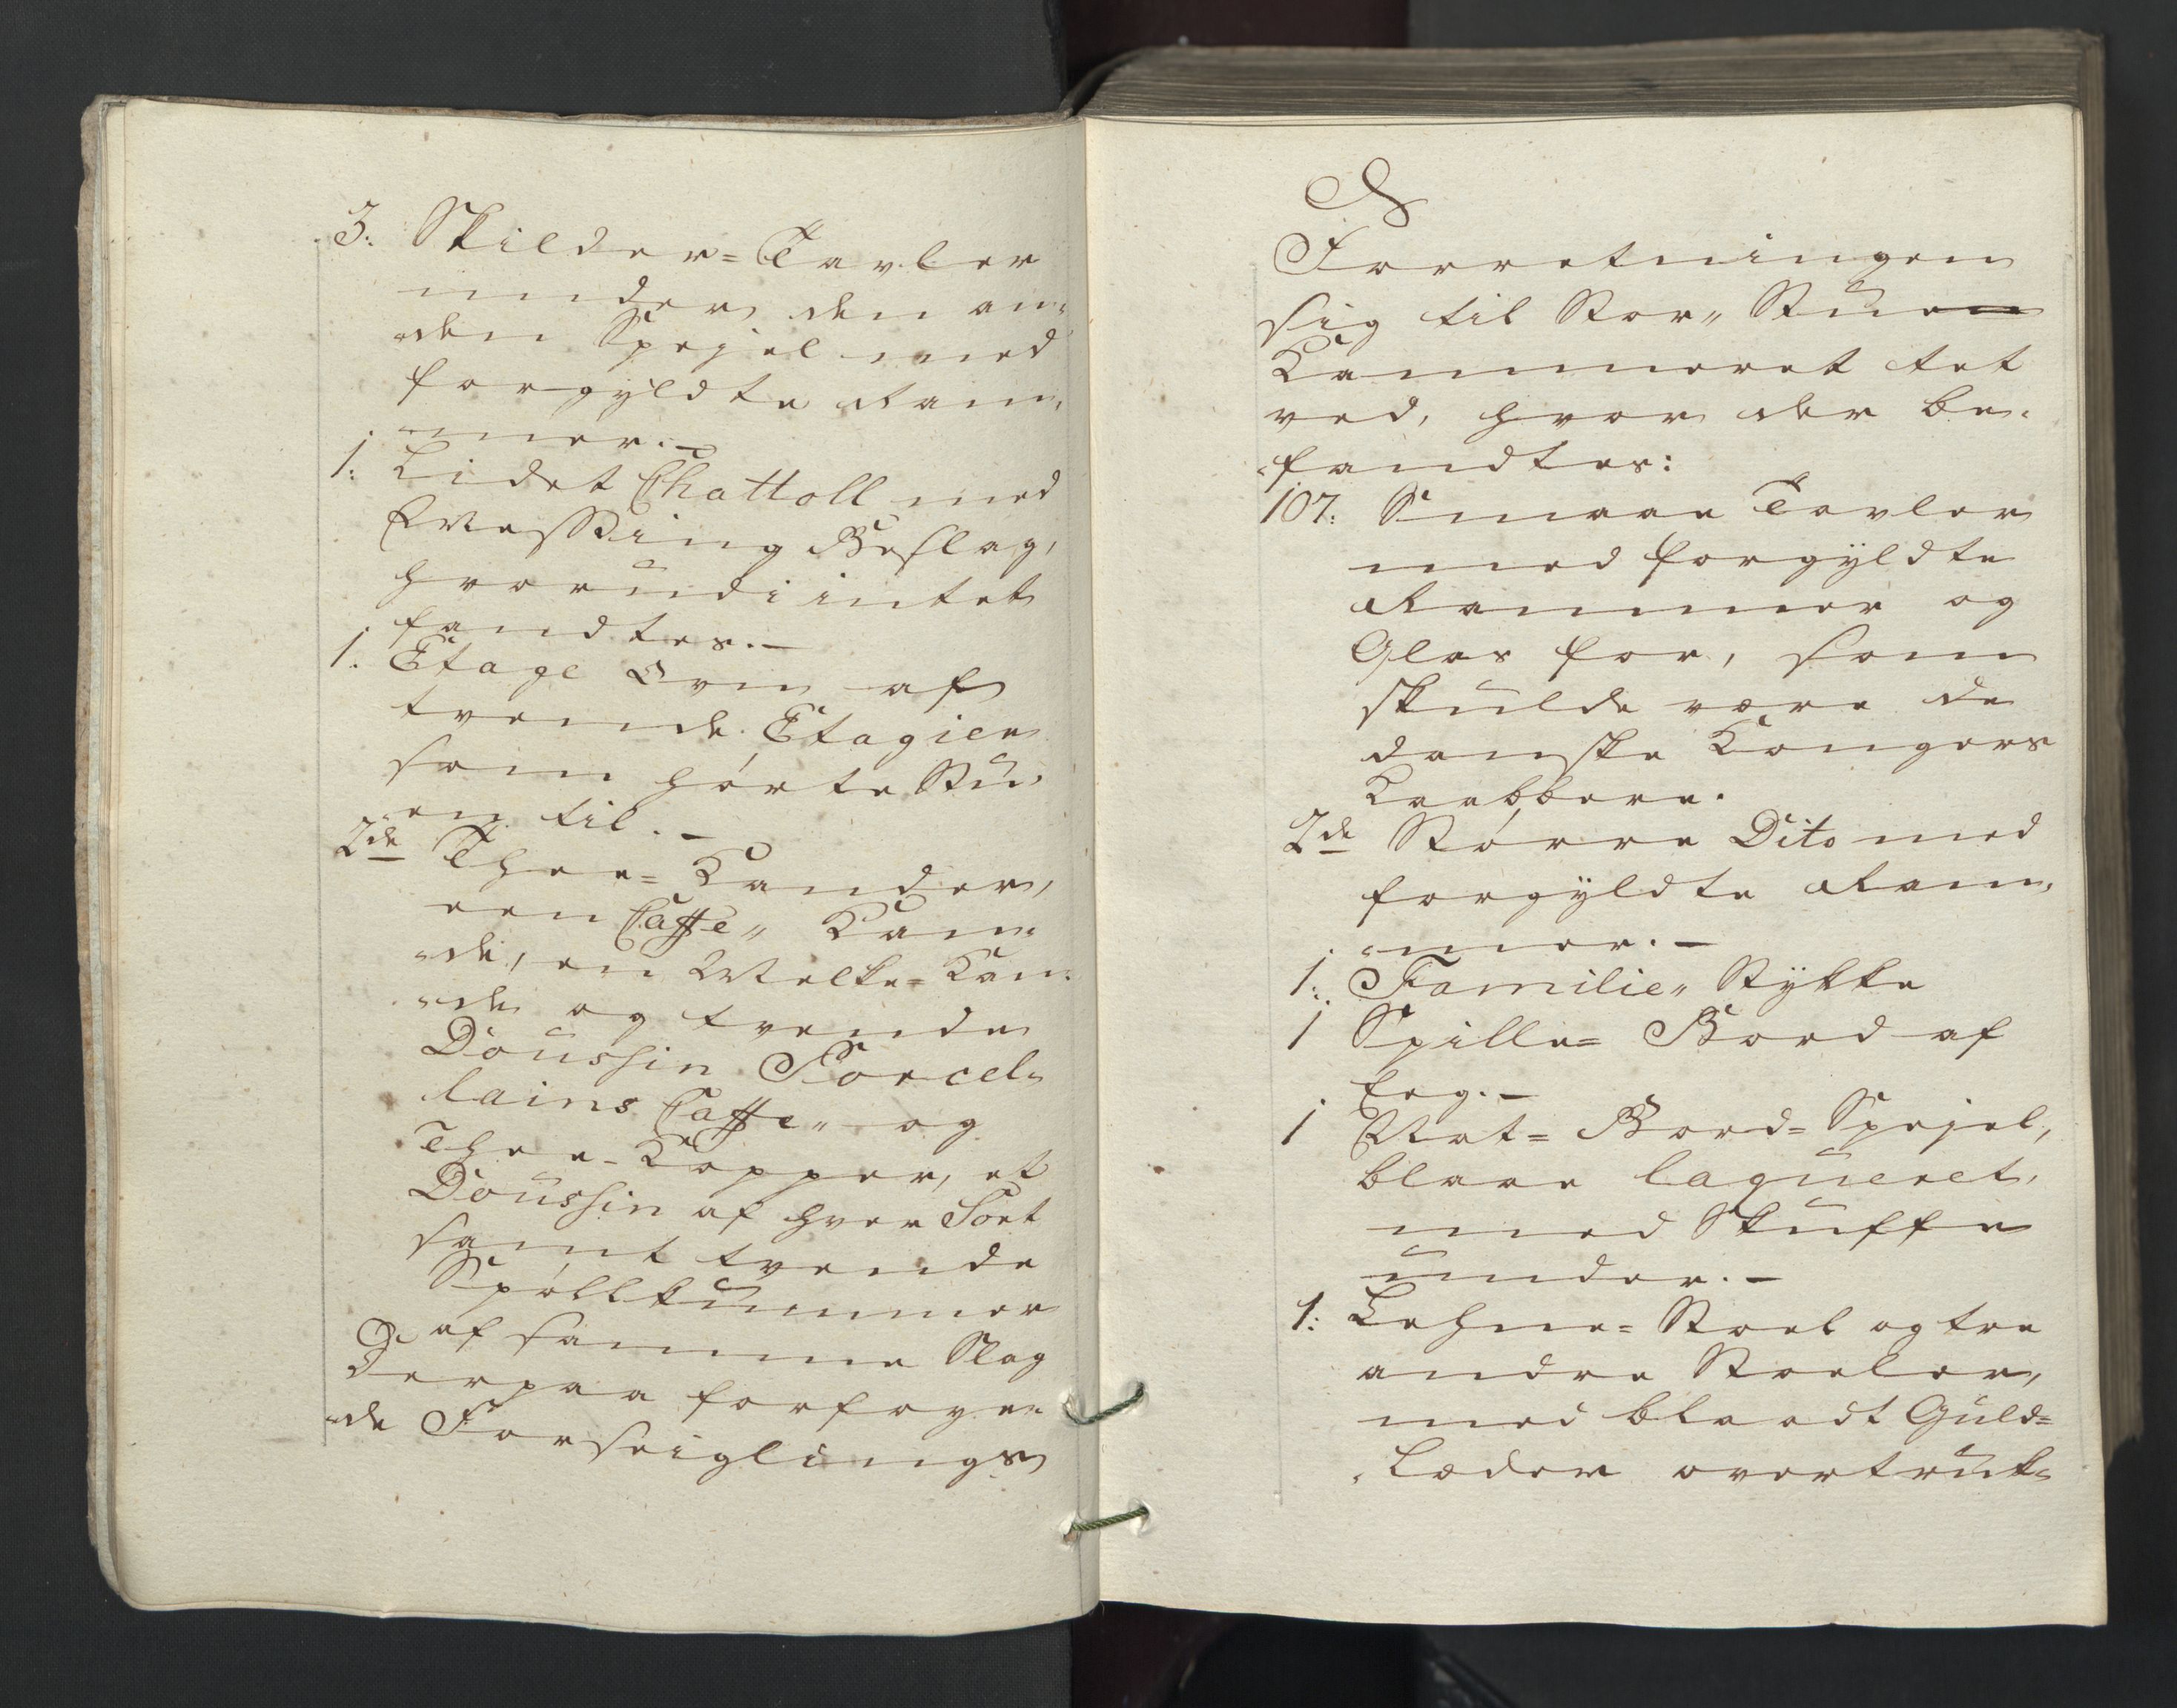 3: Skilder=Tavler
under den an„
„den Spejel med
forgyldte Ram„
„mer. —
1: Lidet Chattoll med
Messing Beslag,
hvorudi intet
fandtes. —
1. Etage Ovn af
tvende Etagier
som hörte Stu„
„en til. —
2de Thee=Kander,
een Caffe„ Kan„
„de, en Melke=Kan„
„de og tvende
Doussin Porcel„
lains Caffe„ og
Thee=Kopper, et
Doussin af hver Sort
samt tvende
Spöllkummer
af samme Slag
Derpaa forföye„
„de Forseiglings
Forretningen
sig til Stor„ Stue
Kammeret tet
ved, hvor der be„
„fandtes:
107: Smaae Tavler
med forgyldte
Rammer og
Glas for, som
skulde være de
danske Kongers
Kaabbere.
2de Större Dito med
forgyldte Ram„
„mer. —
1: Familie„ Stykke
1 Spille= Bord af
Eeg. —
1 Nat= Bord= Spejel,
blaae laqueret,
med Skuffe
under. —
1: Lehne= Stoel og tre
andre Stoeler,
med blaadt Guld=
„Læder overtruk„